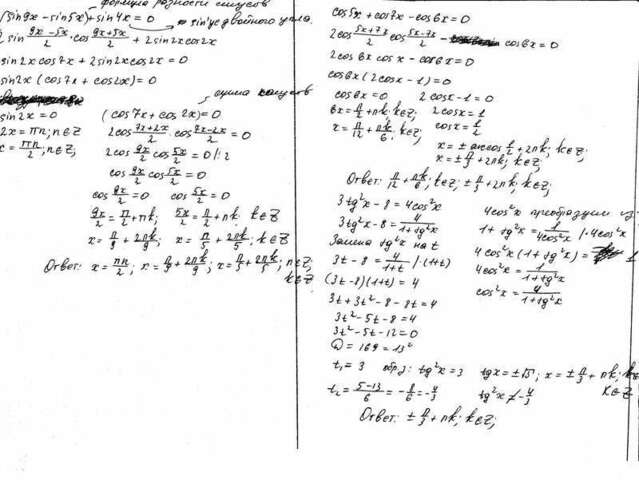 формула разности синусов
(sin9x - sin5x) + sin4x = 0 синус двойного угла.
2sin (9x-5x)/2 · cos (9x+5x)/2 + 2sin2xcos2x
sin2xcos7x + 2sin2xcos2x = 0
sin2x (cos7x + cos2x) = 0
sin2x = 0 (cos7x + cos2x) = 0
2x = πn; n∈Z 2cos (7x+2x)/2 · cos (7x-2x)/2 = 0
x = πn/2; n∈Z, 2cos 9x/2 cos 5x/2 = 0 /:2
cos 9x/2 cos 5x/2 = 0
cos 9x/2 = 0 cos 5x/2 = 0
9x/2 = π/2 + πk; 5x/2 = π/2 + πk k∈Z
x = π/9 + 2πk/9; x = π/5 + 2πk/5; k∈Z
Ответ: x = πn/2; x = π/9 + 2πk/9; x = π/5 + 2πk/5; n∈Z;
k∈Z
cos5x + cos7x - cos6x = 0
2cos (5x+7x)/2 cos (5x-7x)/2 - cos6x = 0
2cos6x cosx - cos6x = 0
cos6x (2cosx - 1) = 0
cos6x = 0 2cosx - 1 = 0
6x = π/2 + πk; k∈Z; 2cosx = 1
x = π/12 + πk/6; k∈Z; cosx = 1/2
x = ± arccos 1/2 + 2πk; k∈Z;
x = ± π/3 + 2πk; k∈Z;
Ответ: π/12 + πk/6; k∈Z; ± π/3 + 2πk; k∈Z;
3tg²x - 8 = 4cos²x
3tg²x - 8 = 4/(1+tg²x)
Замена tg²x на t
3t - 8 = 4/(1+t) /·(1+t)
(3t-8)(1+t) = 4
3t + 3t² - 8 - 8t = 4
3t² - 5t - 8 = 4
3t² - 5t - 12 = 0
D = 169 = 13²
t₁ = 3 tg²x = 3 tgx = ±√3; x = ± π/3 + πk; k∈Z
t₂ = (5-13)/6 = -8/6 = -4/3 tg²x ≠ -4/3
Ответ: ± π/3 + πk; k∈Z;
4cos²x преобразуем из
1 + tg²x = 1/(4cos²x) /·4cos²x
4cos²x (1+tg²x) = 1
4cos²x = 1/(1+tg²x)
cos²x = 4/(1+tg²x)